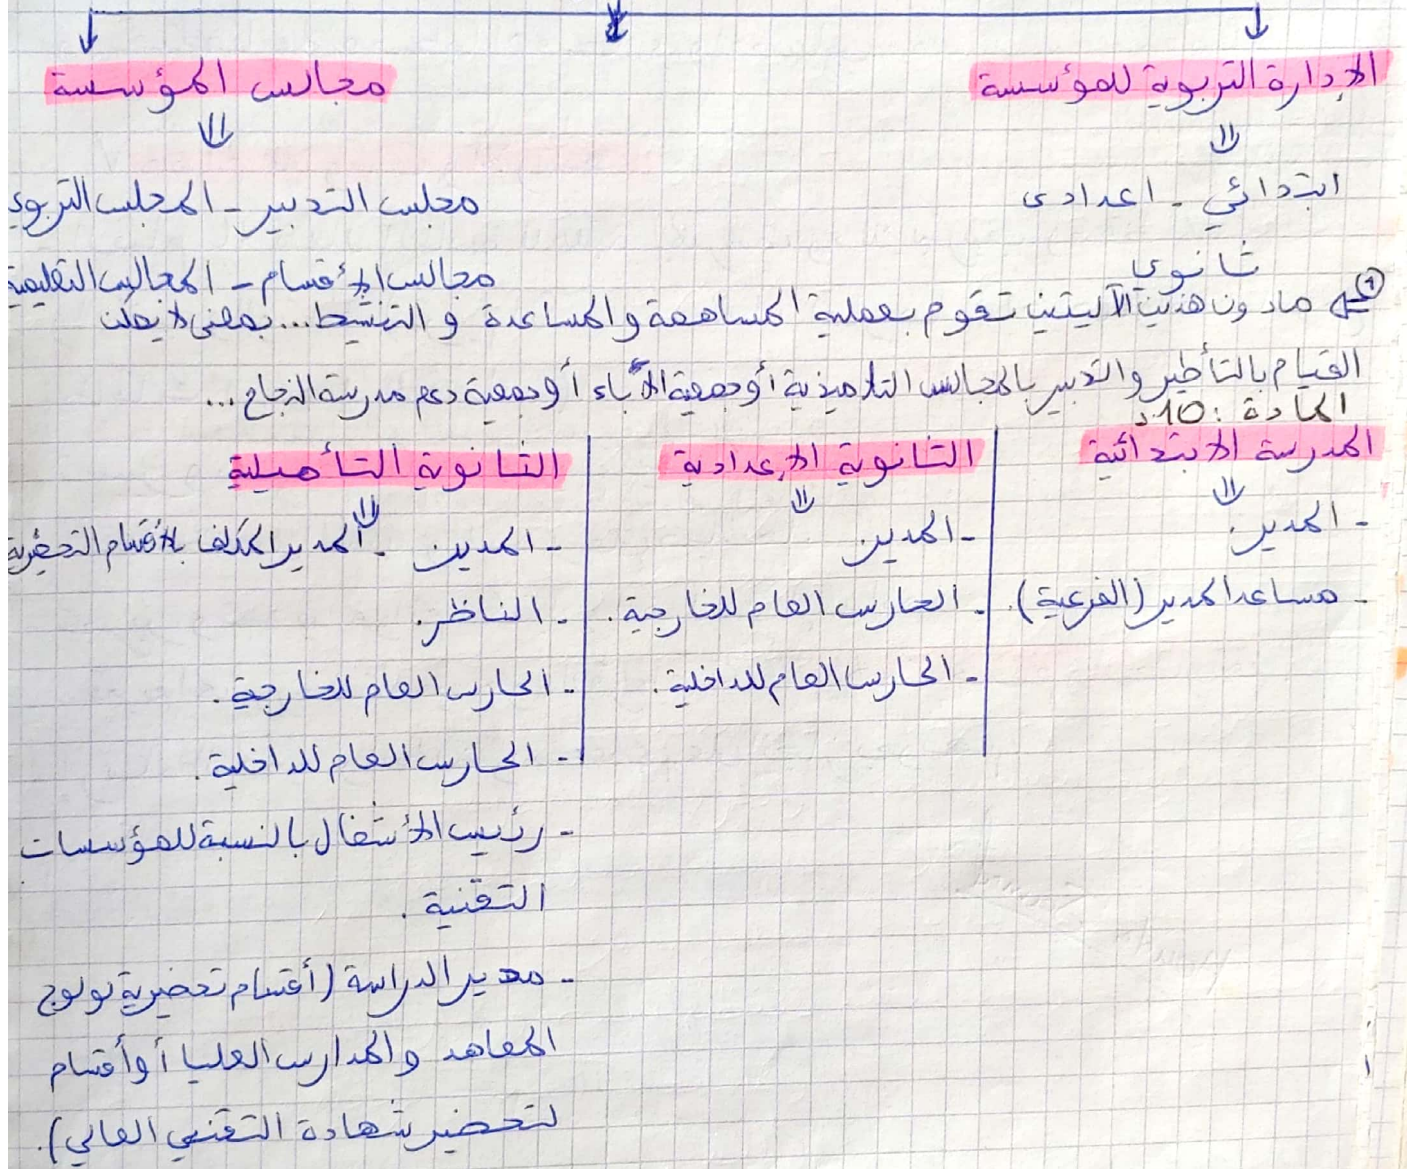 الإدارة التربوية للمؤسسة
ابتدائي - اعدادى
ثانوي
مجالس المؤسسة
مجلس التدبير - المجلس التربوي
مجالس الأقسام - المجالس التعليمية
① مادون هذين الآليتين تقوم بعملية المساهمة والمساعدة و التنشيط... بمعنى لا يمكن
القيام بالتأطير والتدبير بالمجالس التلاميذية أو جمعية الآباء أو جمعية دعم مدرسة النجاح...
المادة : 10
المدرسة الابتدائية
- المدير.
- مساعد المدير (الفرعية).
الثانوية الإعدادية
- المدير
- الحارس العام للخارجية.
- الحارس العام للداخلية.
الثانوية التأهيلية
- المدير - المدير المكلف بالأقسام التحضيرية
- الناظر.
- الحارس العام للخارجية.
- الحارس العام للداخلية.
- رئيس الأشغال بالنسبة للمؤسسات
التقنية.
- مدير الدراسة (أقسام تحضيرية لولوج
المعاهد والمدارس العليا أو أقسام
لتحضير شهادة التقني العالي).